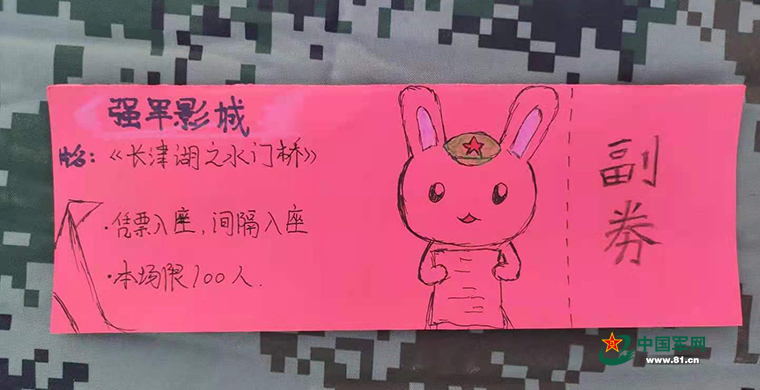 强军影城
片名：《长津湖之水门桥》
·凭票入座，间隔入座
·本场限100人.
副券
中国军网
www.81.cn